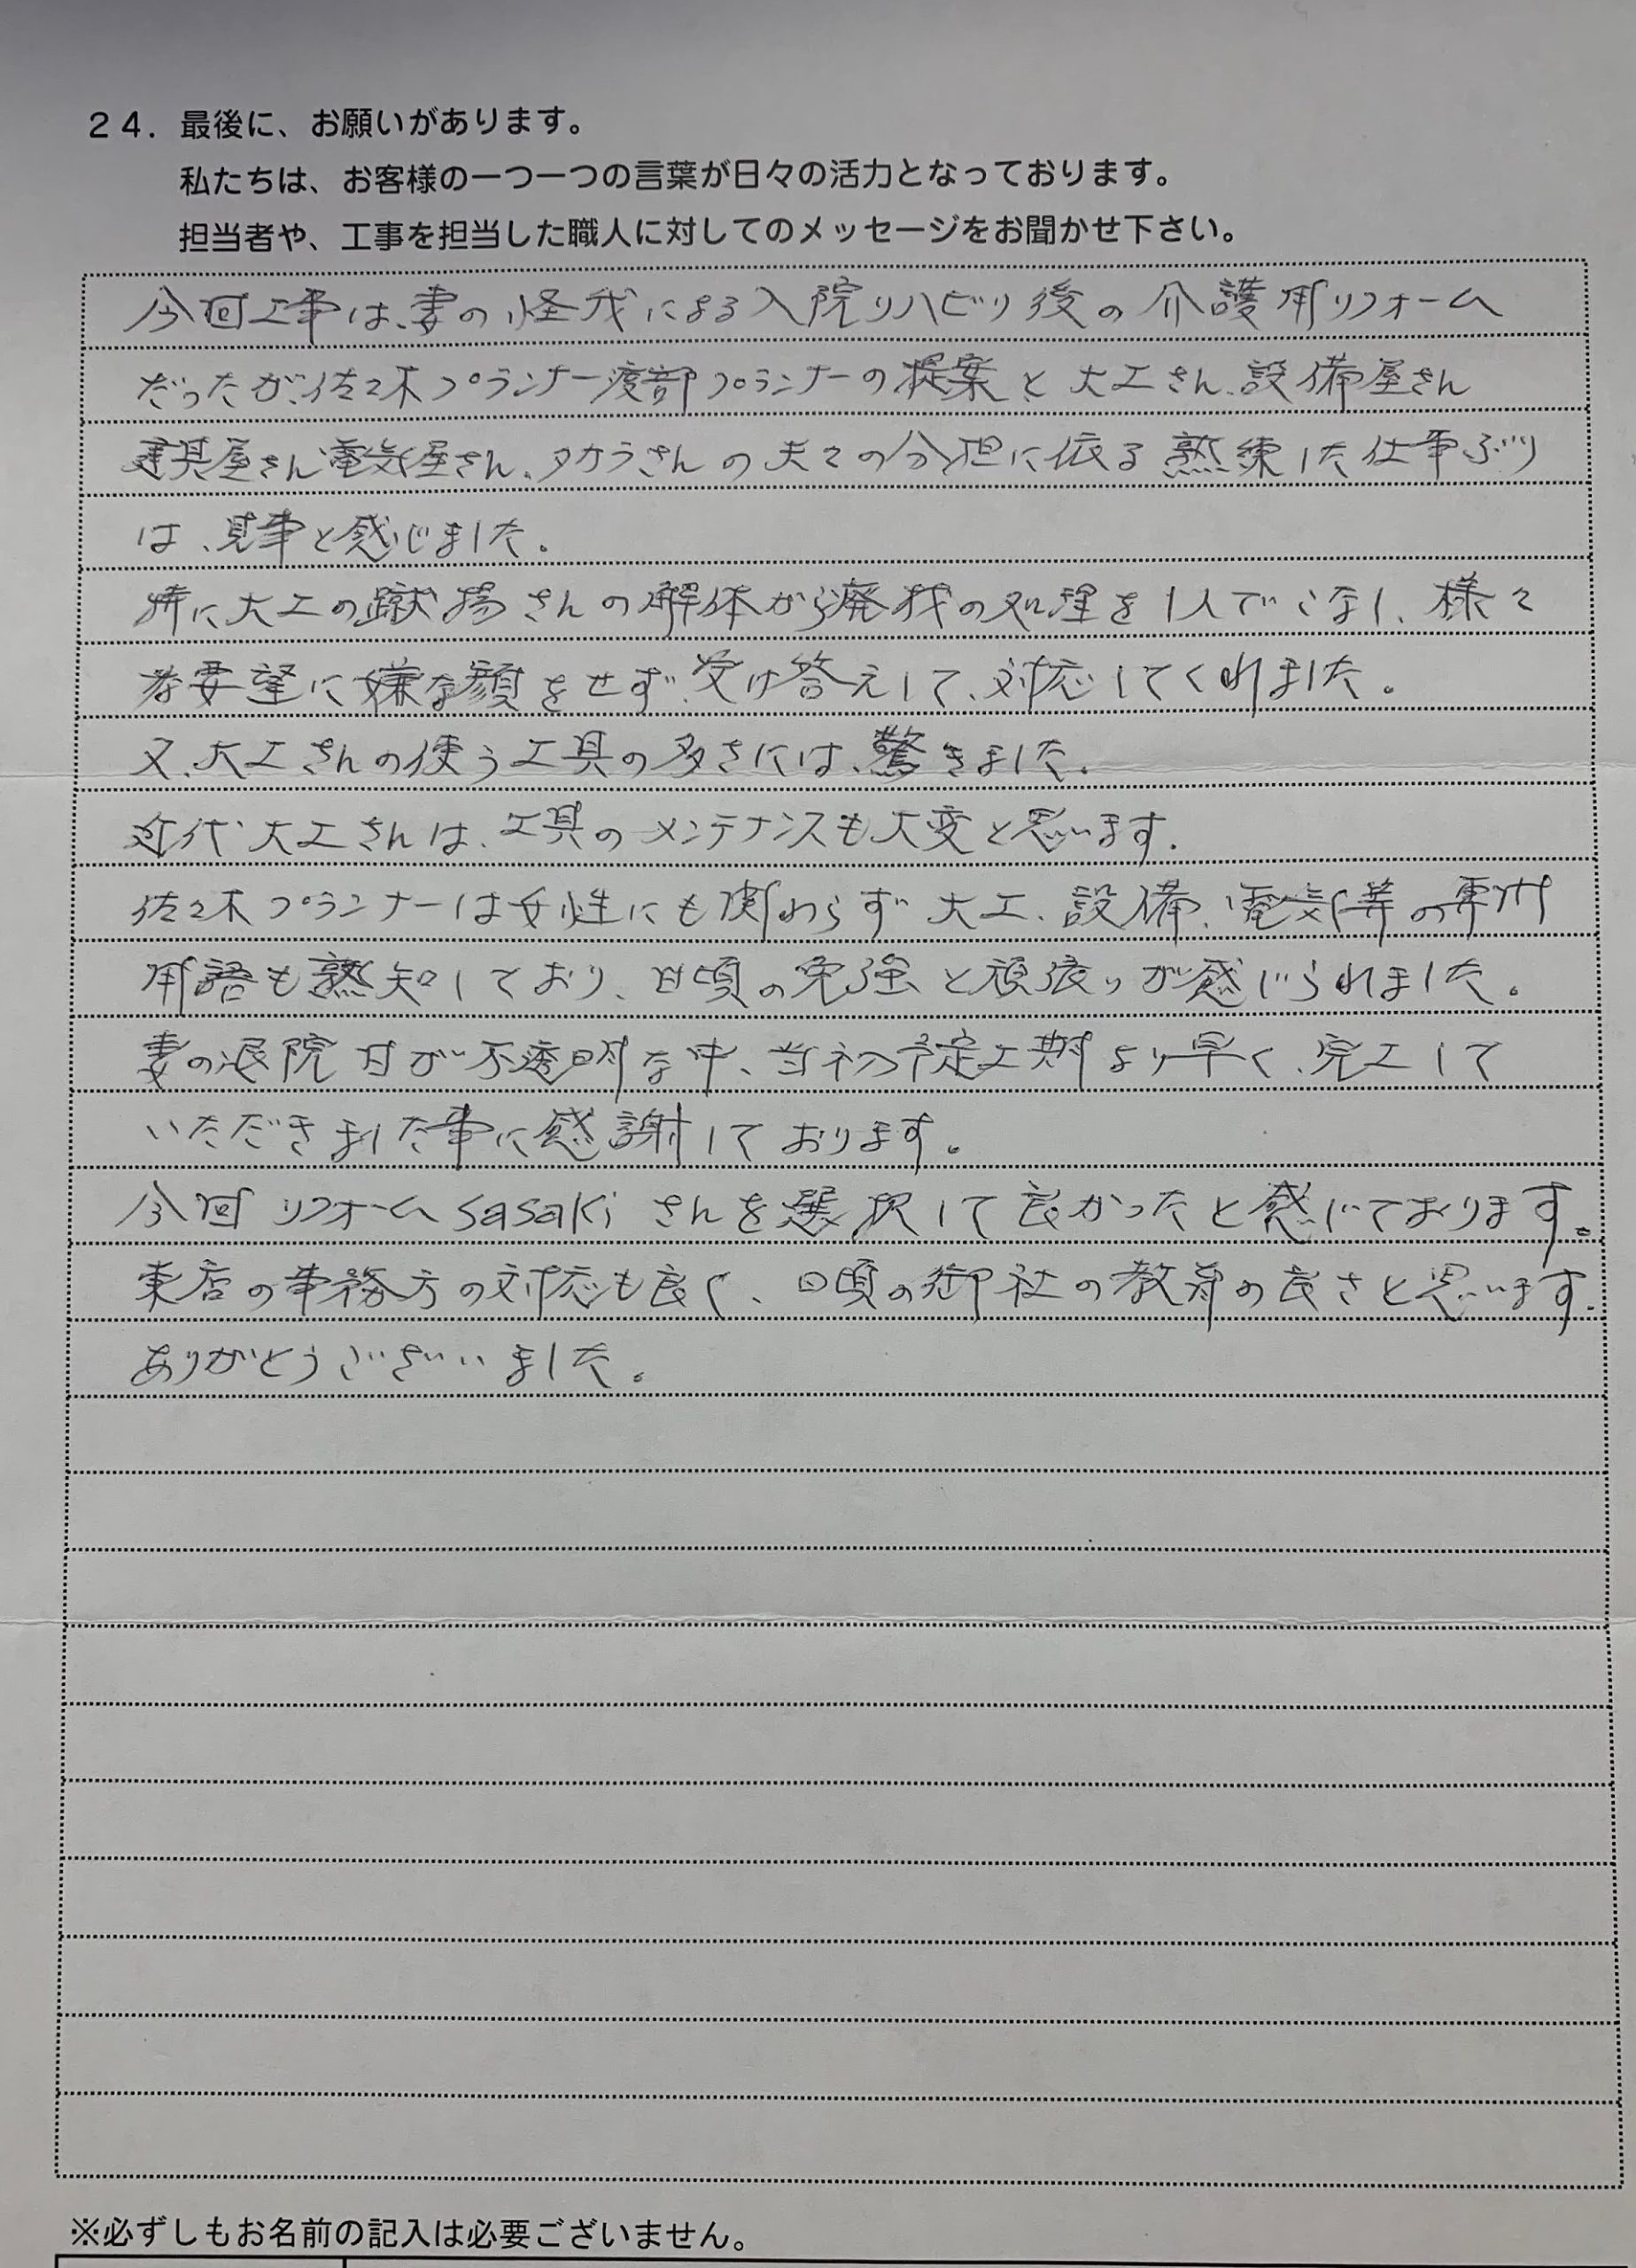 ２４．最後に、お願いがあります。
私たちは、お客様の一つ一つの言葉が日々の活力となっております。
担当者や、工事を担当した職人に対してのメッセージをお聞かせ下さい。
今回工事は、妻の怪我による入院リハビリ後の介護用リフォーム
だったが、佐々木プランナー渡部プランナーの提案と大工さん、設備屋さん
建具屋さん電気屋さん、タカラさんの夫々の分担に依る熟練した仕事ぶり
は、見事と感じました。
特に大工の蹴揚さんの解体から廃残の処理を1人でこなし、様々
な要望に嫌な顔をせず、受け答えして、対応してくれました。
又、大工さんの使う工具の多さには、驚きました。
近代大工さんは、工具のメンテナンスも大変と思います。
佐々木プランナーは女性にも関わらず大工、設備、電気等の専門
用語も熟知しており、日頃の勉強と頑張りが感じられました。
妻の退院日が不透明な中、当初予定工期より早く、完工して
いただきました事に感謝しております。
今回リフォームsasakiさんを選択して良かったと感じております。
来店の事務方の対応も良く、日頃の御社の教育の良さと思います。
ありがとうございいました。
※必ずしもお名前の記入は必要ございません。